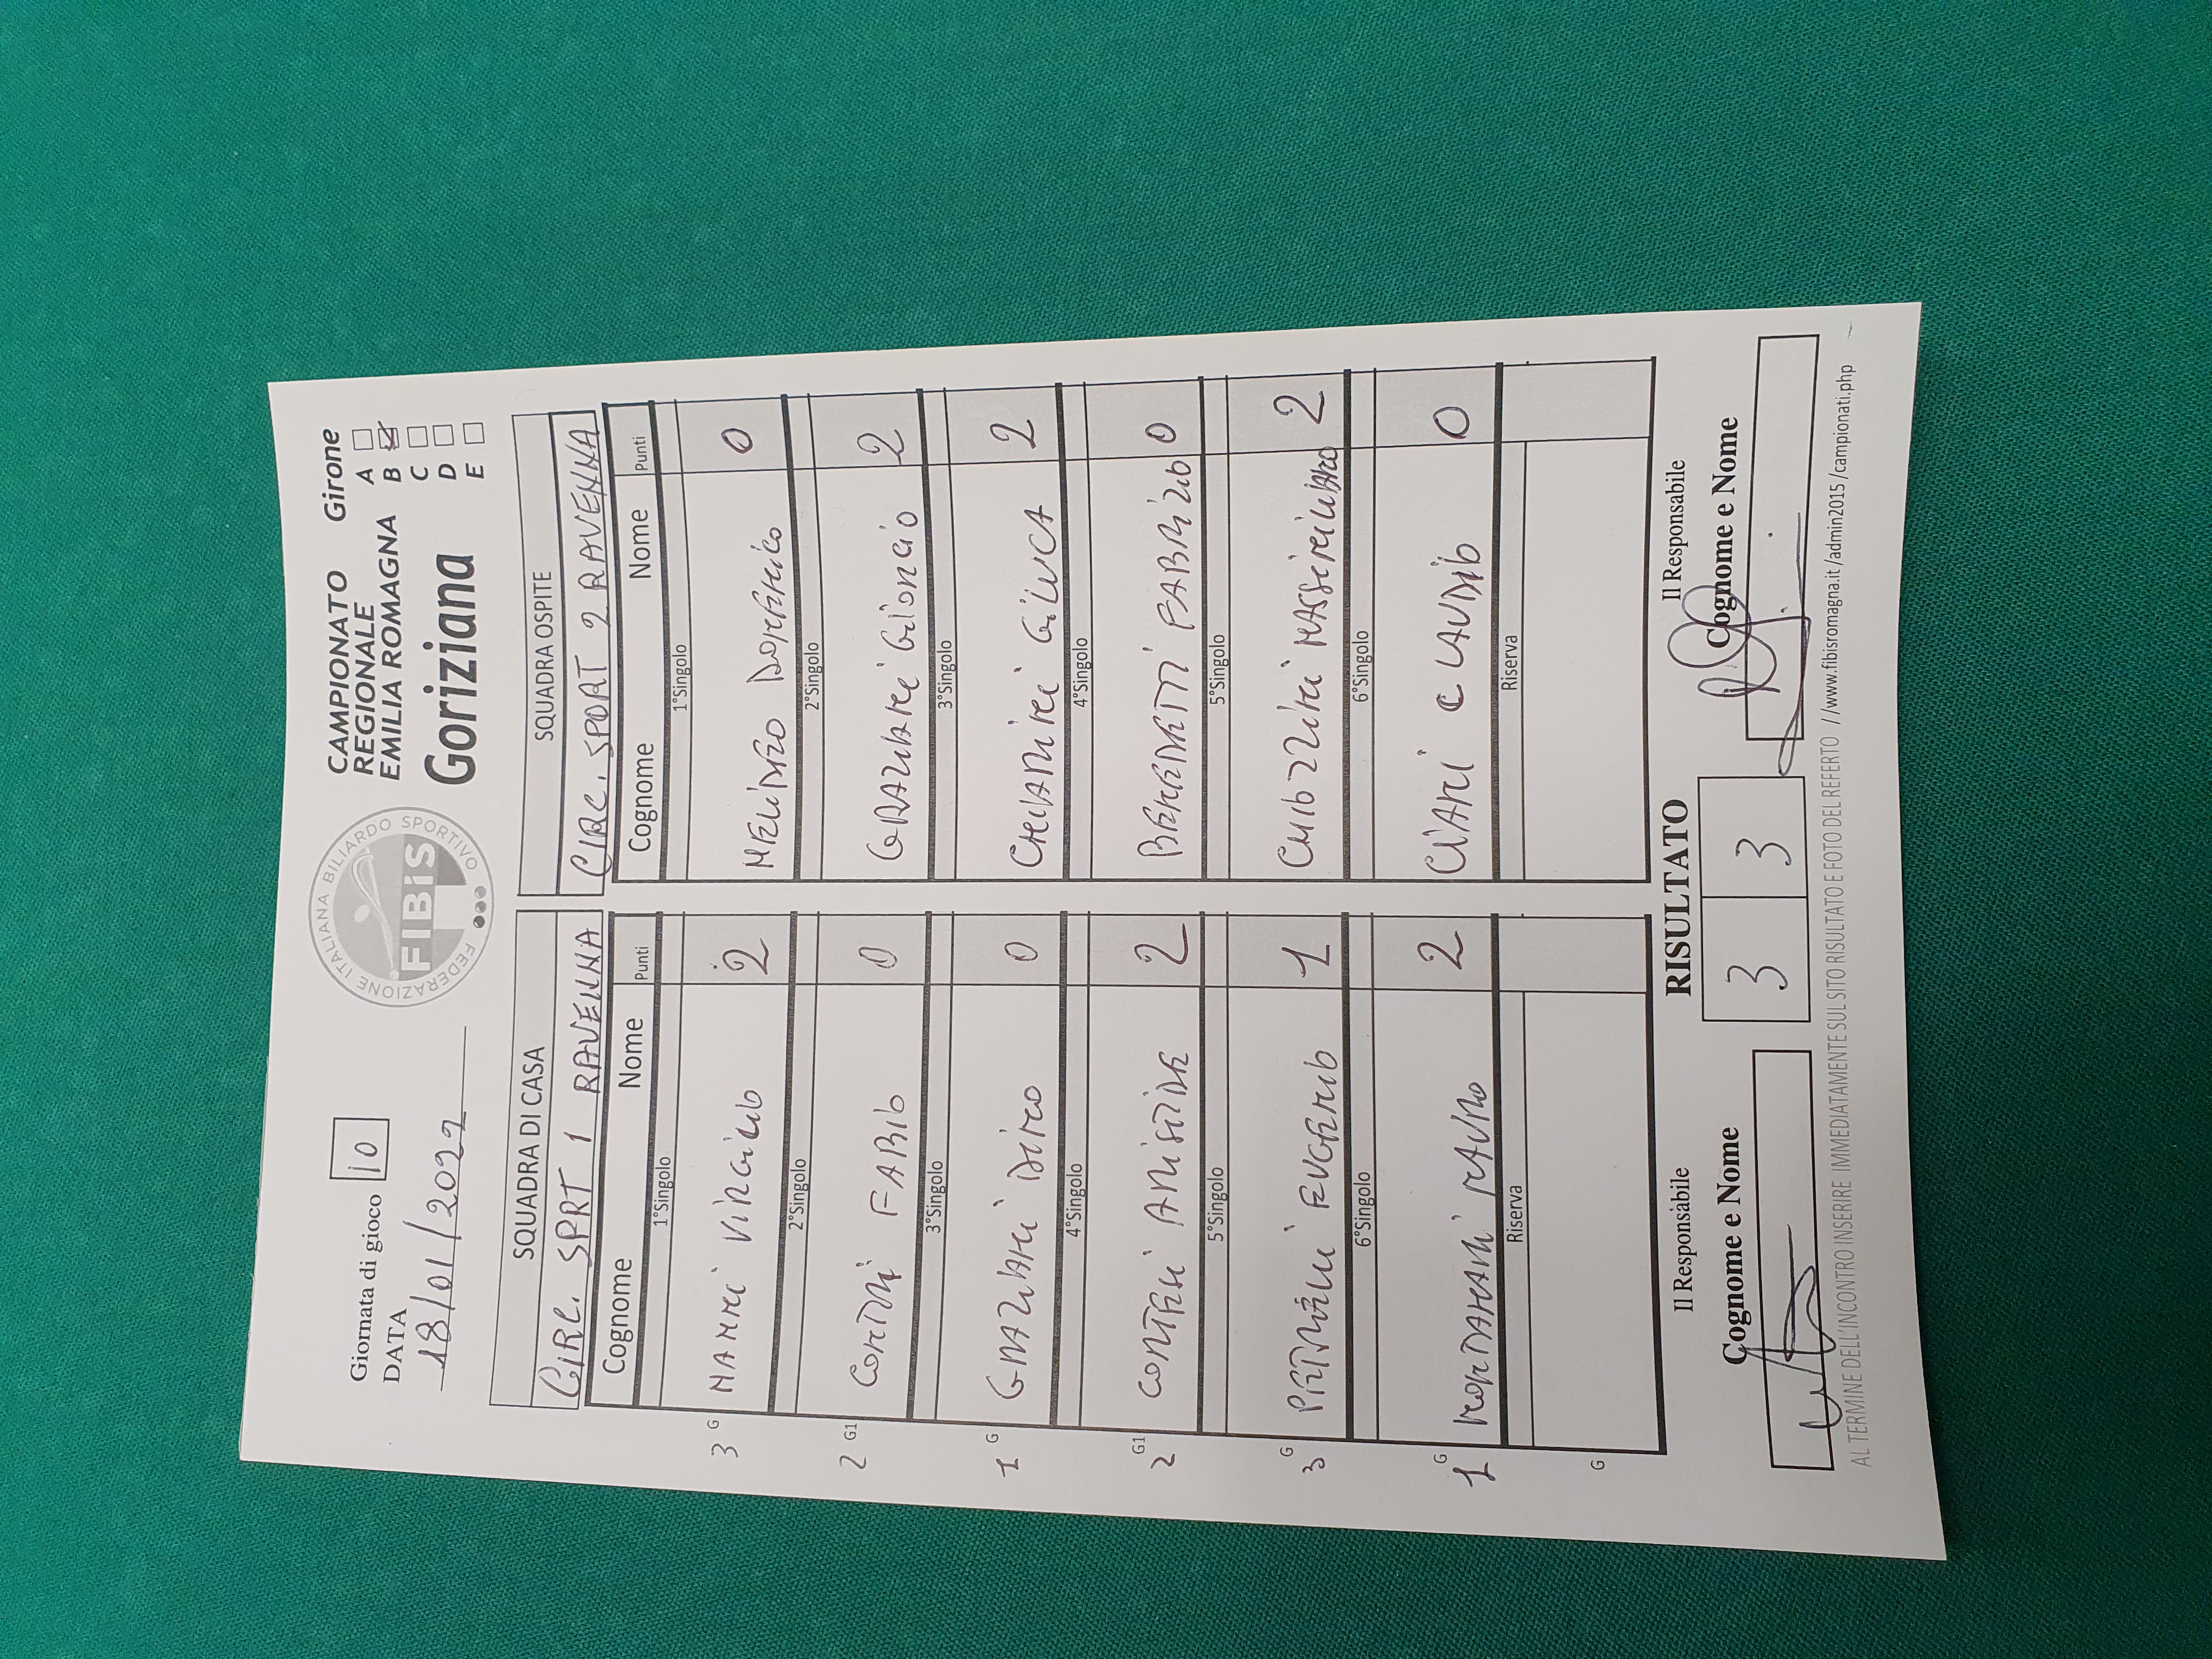 Giornata di gioco 10
DATA
18/01/2022
FEDERAZIONE ITALIANA BILIARDO SPORTIVO
FIBiS
CAMPIONATO Girone
REGIONALE A
EMILIA ROMAGNA B
C
Goriziana D
E
SQUADRA DI CASA SQUADRA OSPITE
CIRC. SPRT 1 RAVENNA CIRC. SPORT 2 RAVENNA
Cognome Nome Punti Cognome Nome Punti
1°Singolo 1°Singolo
3 G NANNI VIRGILIO 2 MELANDRO DOMENICO 0
2°Singolo 2°Singolo
2 G1 CONTI FABIO 0 GRAZIANI GIORGIO 2
3°Singolo 3°Singolo
1 G GRAZIANI DINO 0 CHIARINI GILUCA 2
4°Singolo 4°Singolo
2 G1 CONTESI ARISTIDE 2 BENEDETTI FABRIZIO 0
5°Singolo 5°Singolo
3 G EUGENIO 1 MASSIMILIANO 2
6°Singolo 6°Singolo
1 G MONTANARI MAURO 2 CIANI CLAUDIO 0
Riserva Riserva
G
Il Responsabile RISULTATO Il Responsabile
Cognome e Nome 3 3 Cognome e Nome
AL TERMINE DELL'INCONTRO INSERIRE IMMEDIATAMENTE SUL SITO RISULTATO E FOTO DEL REFERTO //www.fibisromagna.it/admin2015/campionati.php